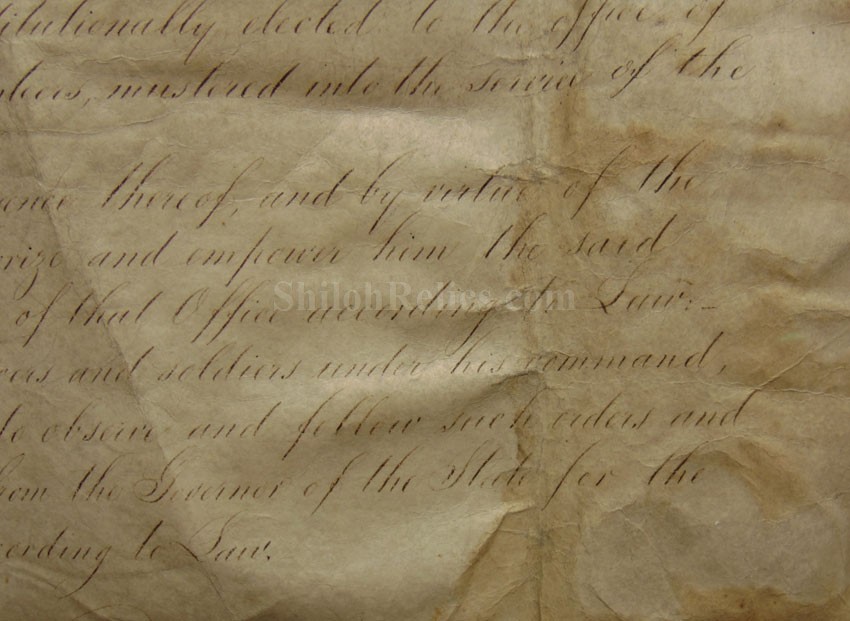 itutionally elected to the office of
nteers, mustered into the service of the
uence thereof, and by virtue of the
orize and empower him the said
of that Office according to Law:-
ShilohRelics.com
cers and soldiers under his command,
to observe and follow such orders and
from the Governor of the State for the
ccording to Law.